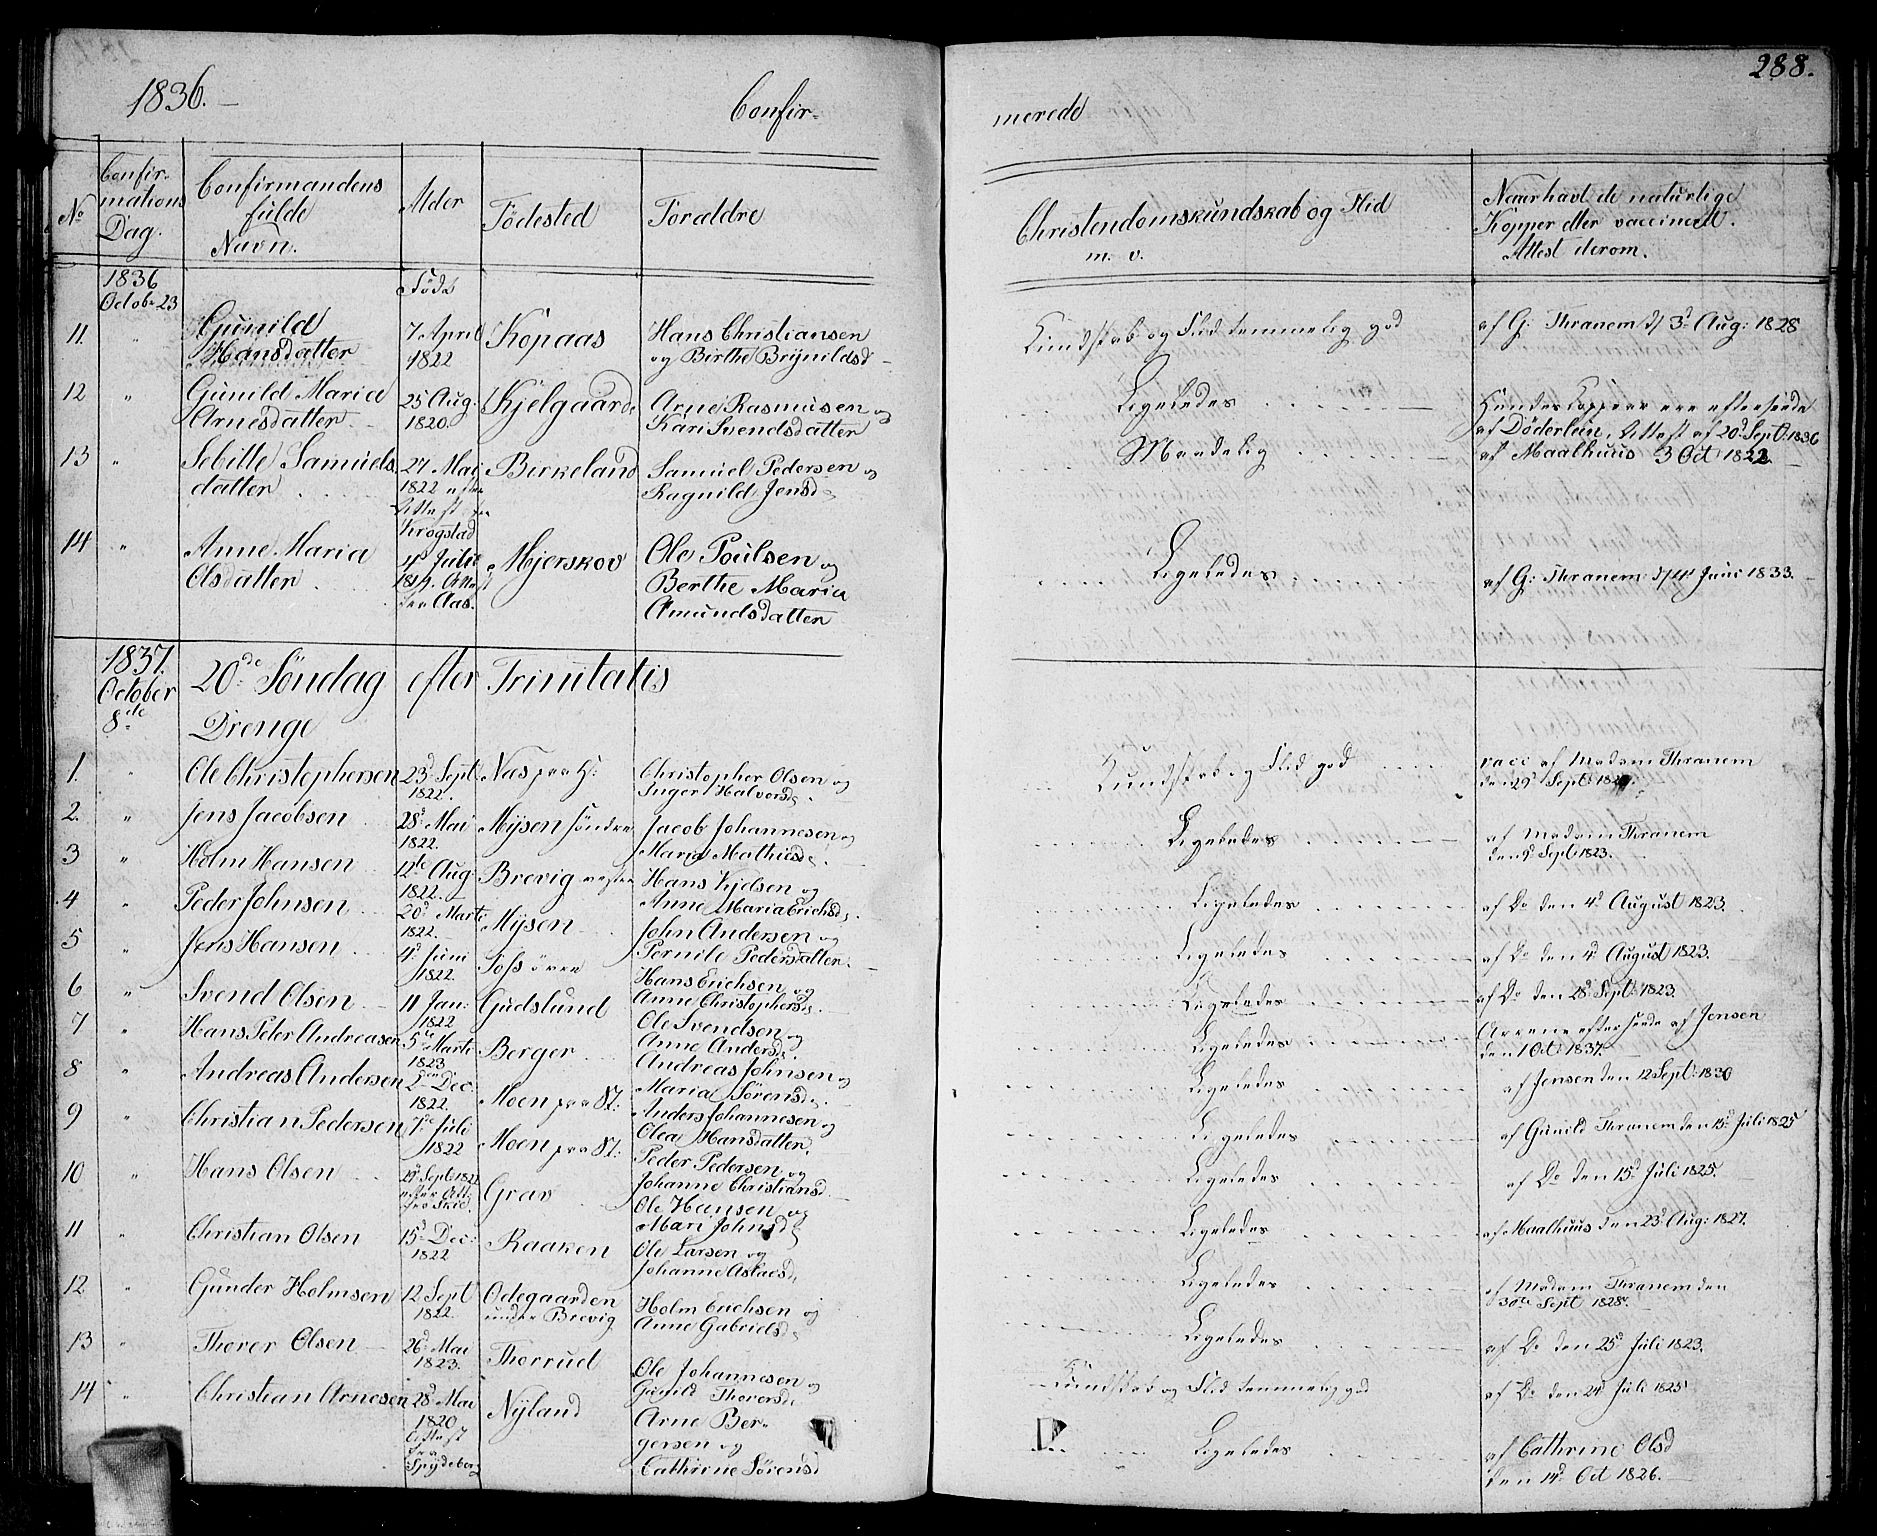 288.
1836. Confir- merede
No Confir- mations Dag. Confirmandens fulde Navn. Alder Födested Forældre Christendomskundskab og Flid m. v. Naar havt de naturlige Kopper eller vaccineret. Attest derom.
1836 Octob. 23 Födt
11. " Gunild Hansdatter 7. April 1822 Kopaas Hans Christiansen og Birthe Brynildsd Kundskab og Flid temmelig god af G: Thranem d/ 3d Aug: 1828
12 " Gunild Maria Arnesdatter 25 Aug: 1820. Kjelgaard Arne Rasmusen og Kari Svendsdatter Ligeledes Kopper ere efterseede af Döderlein, Attest af 20d Sept: 1836
13 " Sebille Samuels datter 27 Mai 1822 efter Attest fra Krogstad Birkeland Samuel Pedersen og Ragnild Jensd: Maadelig af Maalhuus 3 Oct 1822
14 " Anne Maria Olsdatter 4d Julii Attest fra Aas. Mjerskov Ole Poulsen og Berthe Maria Amundsdatter Ligeledes af G: Thranem d/ 4d Juni 1833.
1837. October 8de 20de Söndag efter Trinitatis
Drenge
1. " Ole Christophersen 23d Sept: 1822. Næs Christopher Olsen og Inger Halvorsd: Kundskab og Flid god vacc af Madam Thranem den 29d Sept:
2. " Jens Jacobsen 28d Mai 1822. Mysen söndre Jacob Johannesen og Maria Mathiisd: Ligeledes af Madam Thranem den 9d Sept: 1823.
3 " Holm Hansen 12te Aug 1822. Brevig vestre Hans Kjelsen og Anne Maria Erichsd: Ligeledes af Do den 4d August 1823.
4 " Peder Johnsen 20d Marti 1822. Mysen John Andersen og Pernile Pedersdatter. Ligeledes af Do den 4d August 1823.
5 " Jens Hansen 4d Juni 1822. Foss övre Hans Erichsen og Anne Christophersd: Ligeledes af Do den 28d Sept: 1823.
6 " Svend Olsen 11 Jan: 1822 Gudslund Ole Svendsen og Anne Andersd: Ligeledes Arrene efterseede af Jensen den 1 Oct: 1837.
7 " Hans Peter Andreasen 5te Marti 1823 Berger Andreas Johnsen og Maria Sörensd: Ligeledes af Jensen den 12 Sept: 1830
8 " Andreas Andersen 2den Dec: 1822. Moen Anders Johannesen og Olea Hansdatter. Ligeledes af Gunild Thranem den 15d Juli 1825
9 " Christian Pedersen 7de Juli 1822 Moen Peder Pedersen og Johanne Christiansd. Ligeledes af Do den 15d Juli 1825.
10 " Hans Olsen 29d Sept: 1822 efter Att: fra Skie. Grav Ole Hansen og Mari Johnsd: Ligeledes af Maalhuus den 23d Aug: 1827.
11 " Christian Olsen 15d Dec: 1822 Raaken Ole Larsen og Johanne Aslacsd: Ligeledes af Madam Thranem den 30te Sept 1828.
12 " Gunder Holmsen 12 Sept 1822. Odegaarden under Brevig Holm Erichsen og Anne Gabrielsd: Ligeledes af Do den 25d Juli 1823.
13 " Thorer Olsen 26d Mai 1823. Thorrud Ole Johannesen og Gunild Thorersd: Kundskab og Flid temmelig god af Do den 24d Juli 1825
14 " Christian Arnesen 28d Mai 1820 Attest fra Spydeberg Nyland Arne Ber- gersen og Cathrine Sörensd Ligeledes af Cathrine Olsd den 14d Oct 1826.